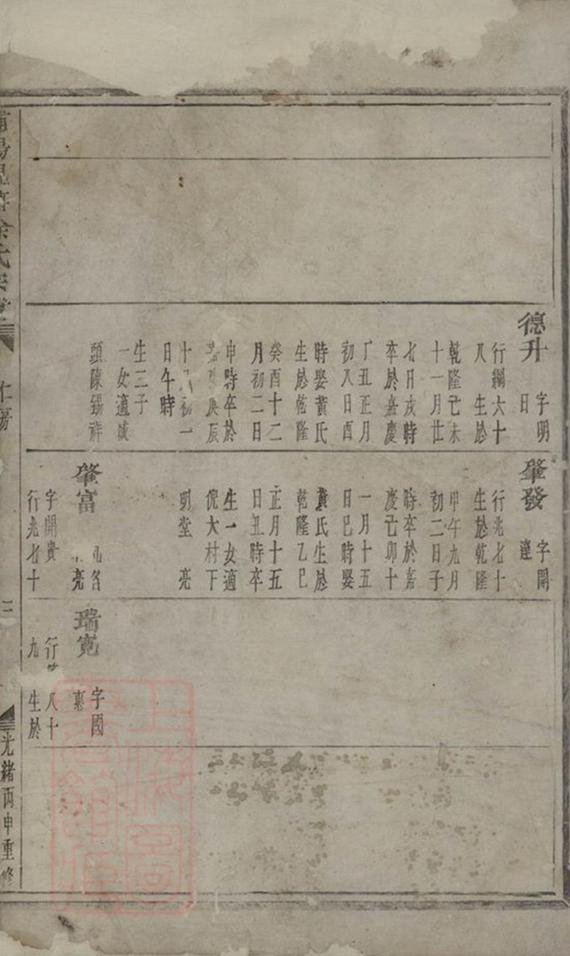 德升 字明
日
行綱六十
八 生於
乾隆己未
十一月廿
七日亥時
卒於嘉慶
丁丑正月
初八日酉
時娶黄氏
生於乾隆
癸酉十二
月初二日
申時卒於
庚辰
十 初一
日午時
生三子
一女適誠
頭陳錫祥
肇發 字開
運
行兆七十
生於乾隆
甲午九月
初二日子
時卒於嘉
慶己卯十
一月十五
日巳時娶
黄氏生於
乾隆乙巳
正月十五
日丑時卒
生一女適
倪大村下
明堂 亮
肇富 名
亮
字開貴
行兆七十
瑞寬 字國
裏
行 八十
九 生於
余氏宗
仁房
光緒丙申重修